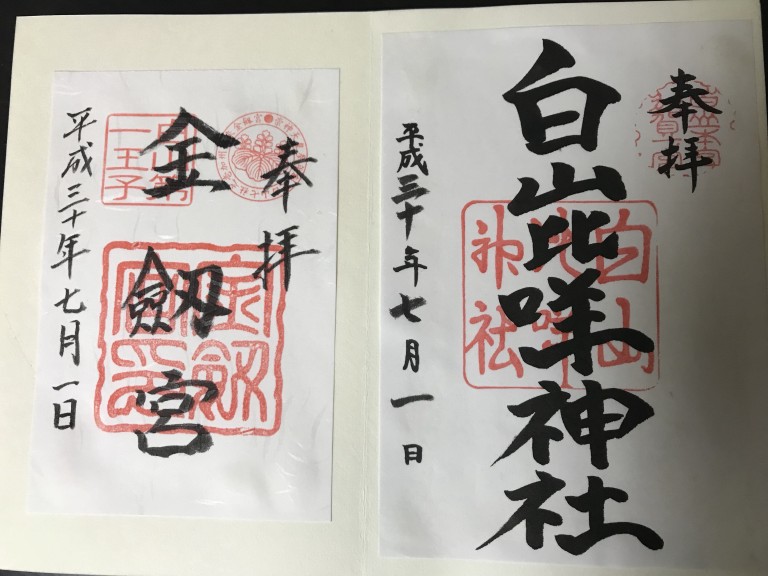 奉拝
白山比咩神社
白山比咩神社
平成三十年七月一日
奉拝
金劔宮
白山第一王子
金劔宮印
平成三十年七月一日